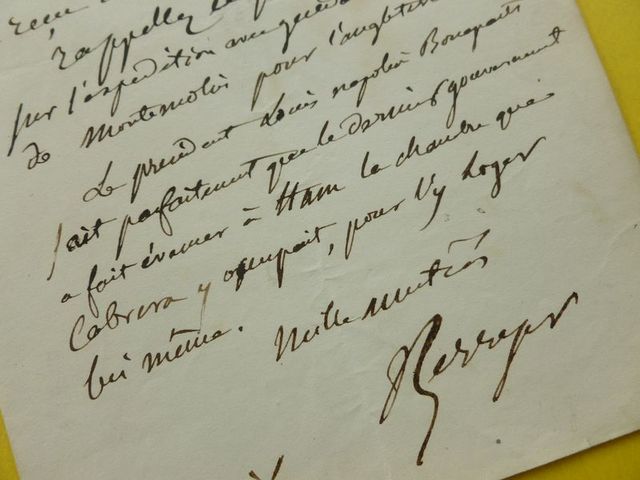 rappeller
sur l'expédition
de Montemolin pour l'angleterre
Le président Louis napoléon Bonaparte
sait parfaitement que le dernier gouvernement
a fait évacuer à Ham la chambre que
Cabrera y occupait, pour l'y loger
lui même. Mille